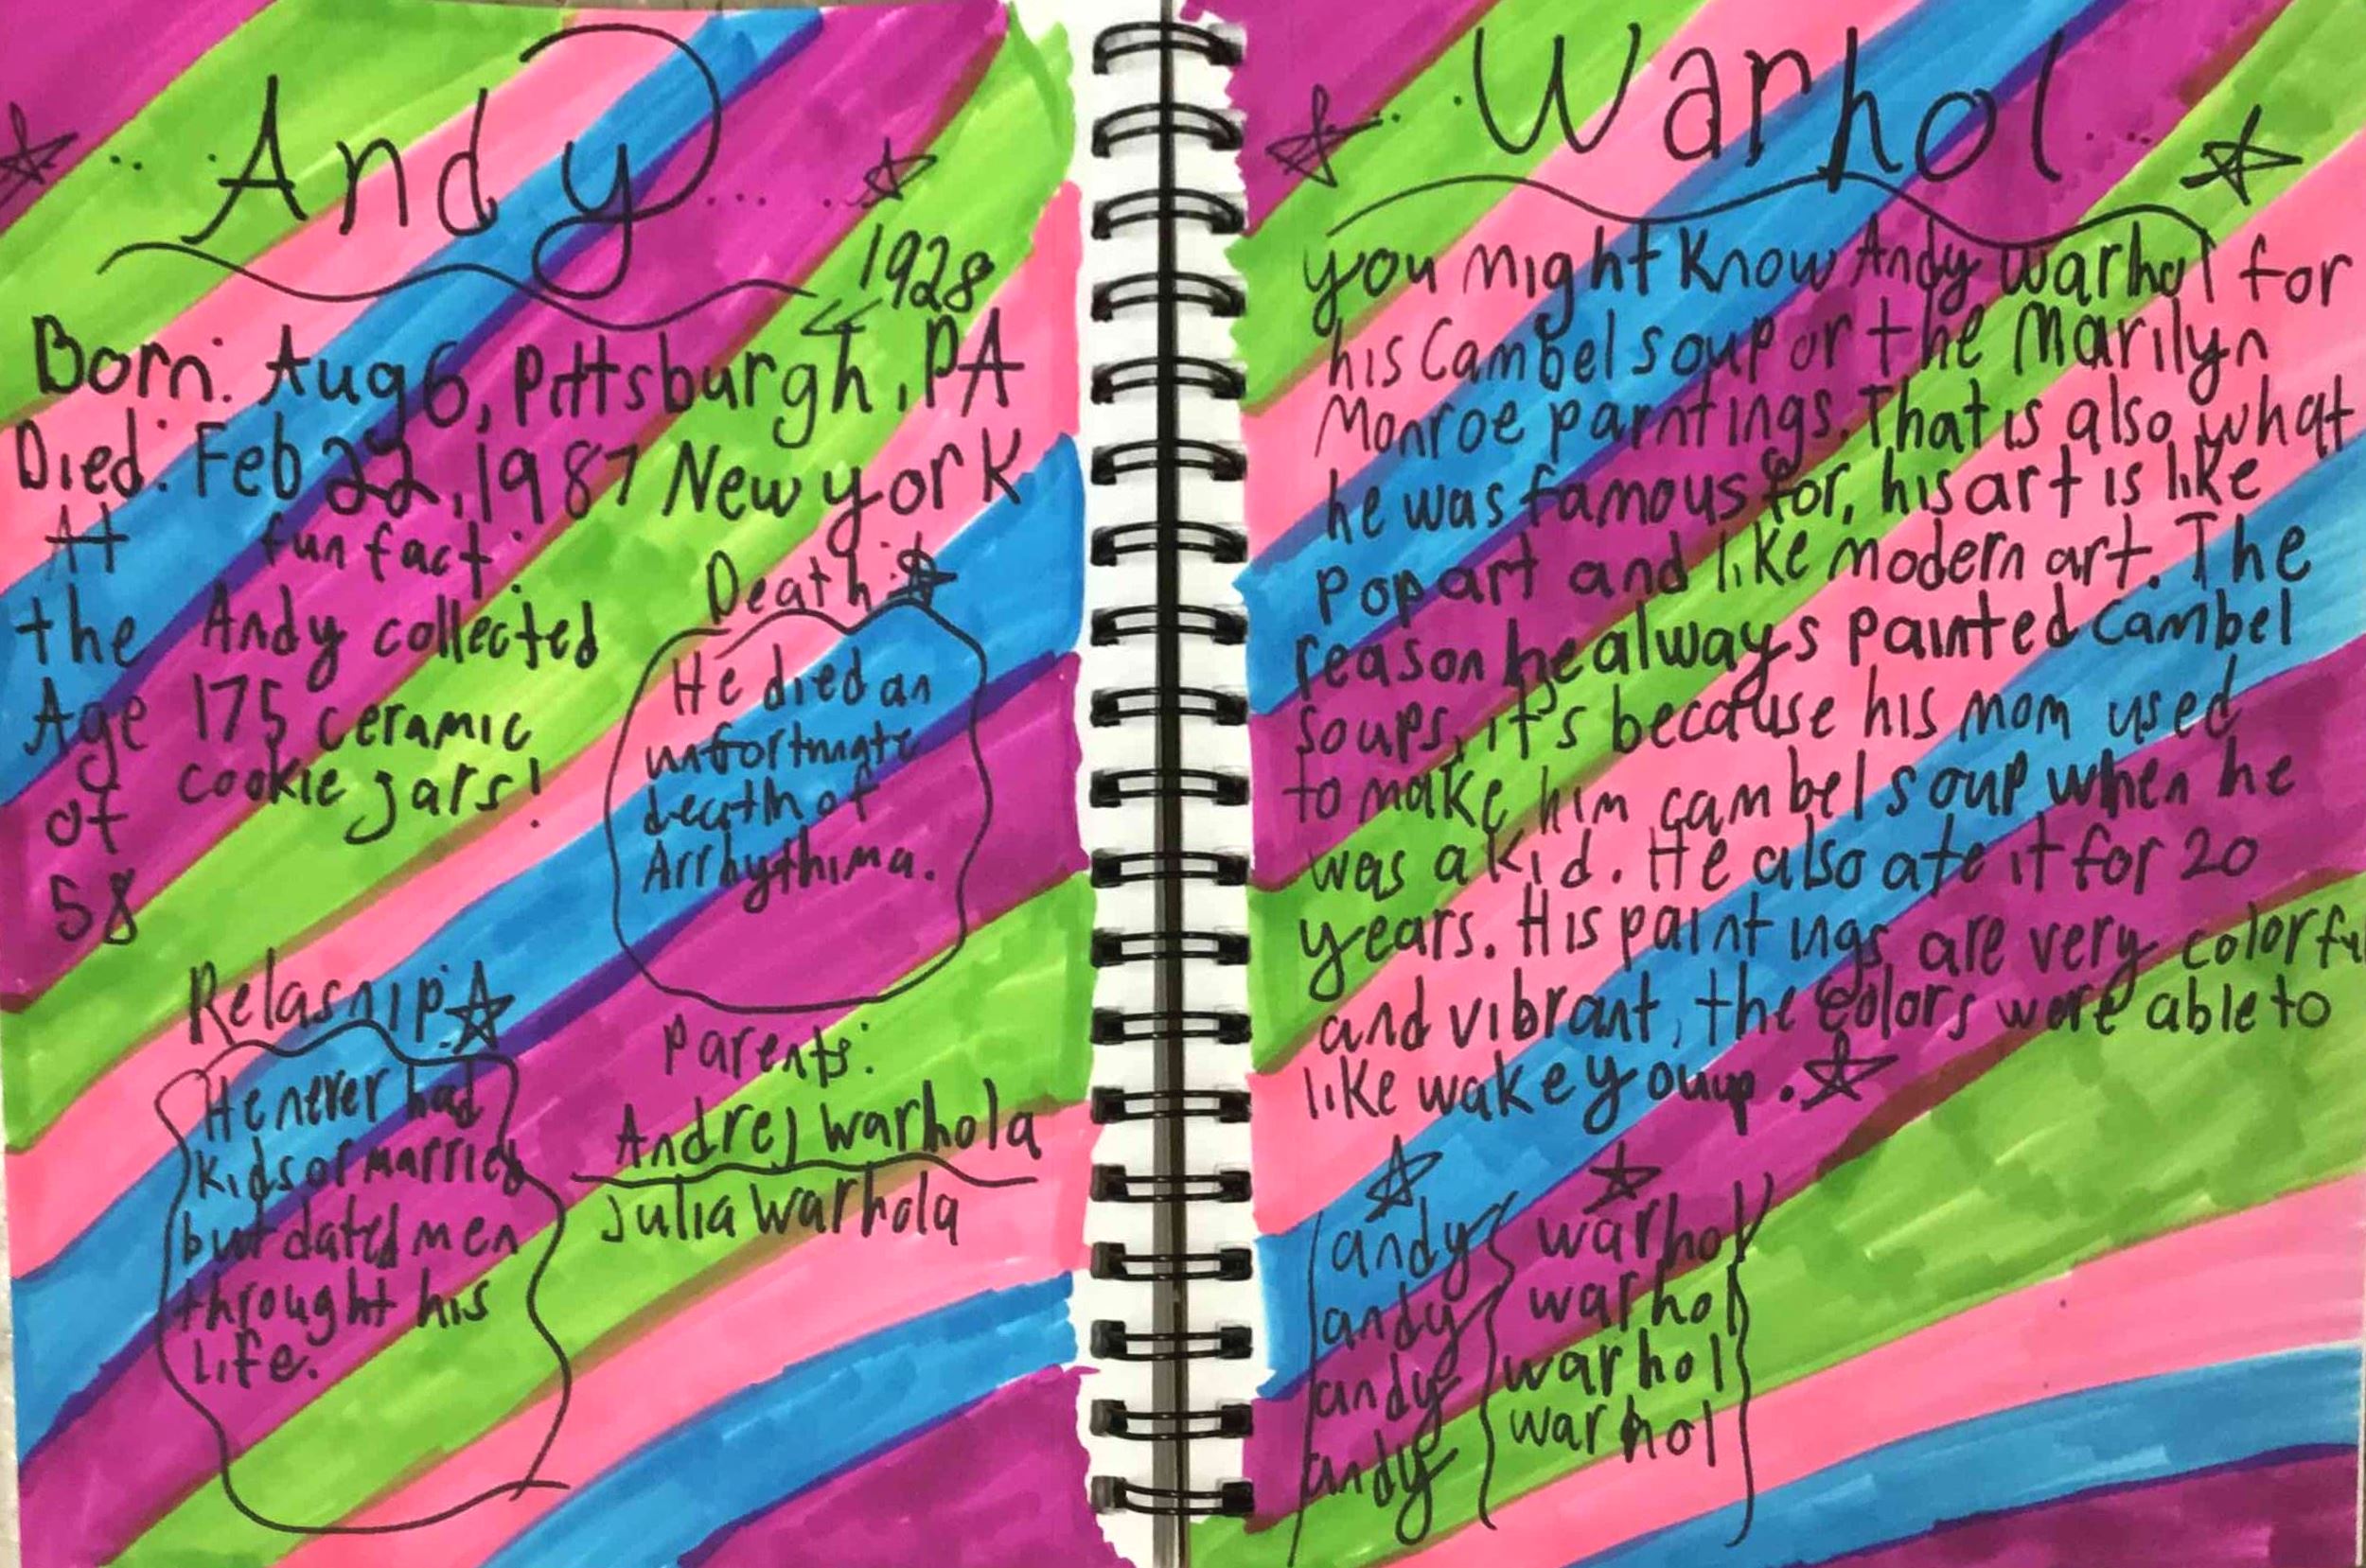 Andy
1928
Born: Aug 6, Pittsburgh, PA
Died: Feb 22, 1987 New york
At
the
Age
of
58
fun fact:
Andy collected
175 ceramic
cookie jars!
Death:
He died an
unfortunate
death of
Arrhythima.
Relasnip:
He never had
kids or married
but dated men
throught his
life.
Parents:
Andrej Warhola
Julia Warhola
Warhol
you might Know Andy warhol for
his Cambel soup or the Marilyn
Monroe parntings. That is also what
he was famous for, his art is like
Pop art and like modern art. The
reason he always painted Cambel
soups, it's because his mom used
to make him cambel soup when he
was a kid. He also ate it for 20
years. His paintings are very colorful
and vibrant, the colors were able to
like wake you up.
andy warhol
andy warhol
andy warhol
andy warhol